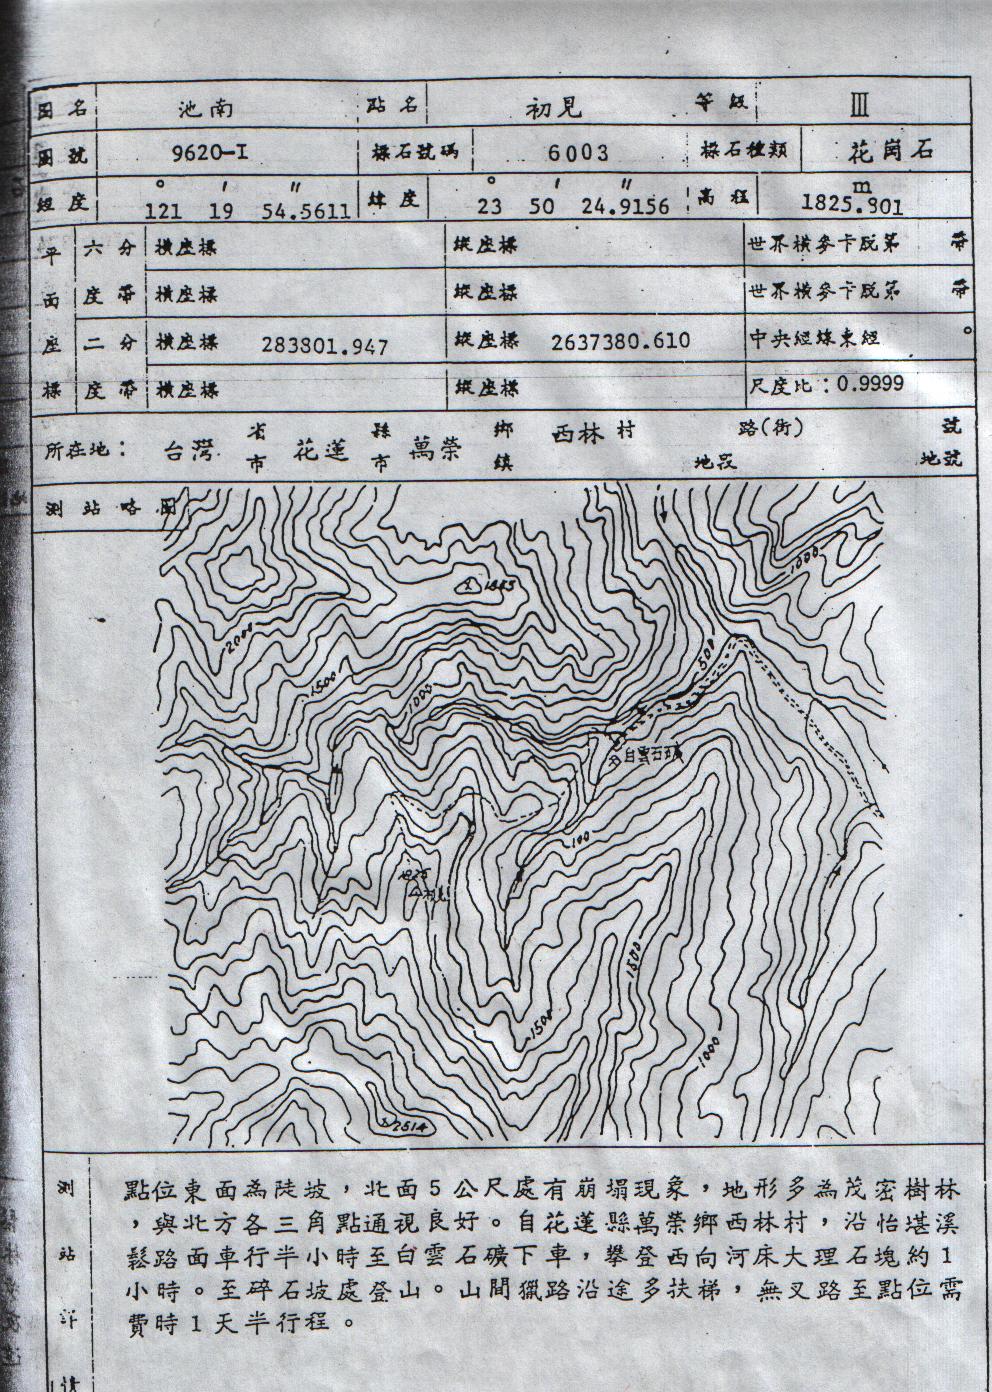 圖名 池南 點名 初見 等級 III
圖號 9620-I 標石號碼 6003 標石種類 花崗石
經度 121° 19′ 54.5611″ 緯度 23° 50′ 24.9156″ 高程 1825.801m
平面座標 六分度帶 橫座標 縱座標 世界橫麥卡脫第 帶
橫座標 縱座標 世界橫麥卡脫第 帶
二分度帶 橫座標 283801.947 縱座標 2637380.610 中央經線東經 °
橫座標 縱座標 尺度比：0.9999
所在地： 台灣 省市 花蓮 縣市 萬榮 鄉鎮 西林村 路(街) 地段 號 地號
測站略圖
1885
1000
2000
1500
1000
500
白雲石礦
100
1500
1500
1000
2514
測站詳
點位東面為陡坡，北面5公尺處有崩塌現象，地形多為茂密樹林
，與北方各三角點通視良好。自花蓮縣萬榮鄉西林村，沿怡堪溪
鬆路面車行半小時至白雲石礦下車，攀登西向河床大理石塊約1
小時。至碎石坡處登山。山間獵路沿途多扶梯，無叉路至點位需
費時1天半行程。